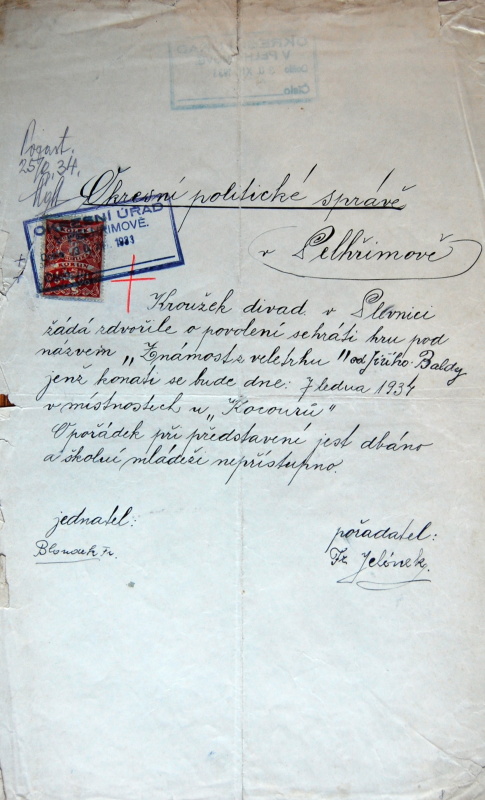 25/9. 34.
Okresní politické správě
OKRESNÍ ÚŘAD
v Pelhřimově
Kroužek divad. v Plevnici
žádá zdvořile o povolení sehráti hru pod
názvem „Známost z veletrhu" od Jiřího Baldy
jenž konati se bude dne: 7 ledna 1934
v místnostech u „Kocourů"
O pořádek při představení jest dbáno
a školní mládeži nepřístupno.
jednatel: pořadatel:
Fr. Fr. Jelínek.